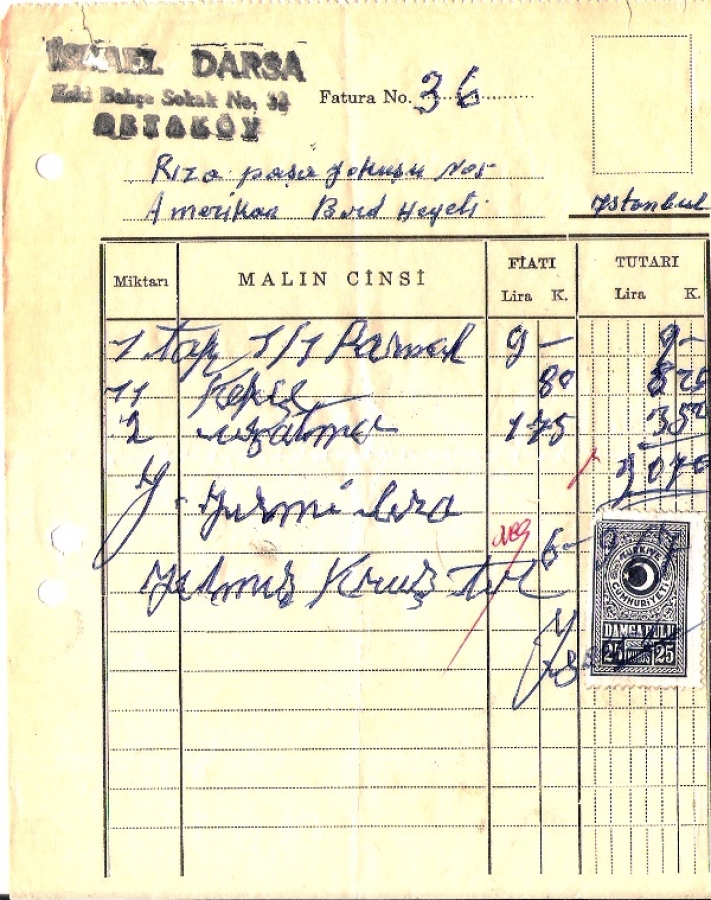 İSMAEL DARSA
Eski Bahçe Sokak No. 32
ORTAKÖY
Fatura No. 36
Rıza paşa yokuşu No5
Amerikan Bord Heyeti
Istanbul
Miktarı MALIN CİNSİ FİATI TUTARI
Lira K. Lira K.
1 1/1 9- 9-
11 80
2 uzatma 175 350
20 70
Y. Yirmi lira
Yetmiş Kuruş tur
TÜRKİYE CUMHURİYETİ
DAMGA PULU
25 KURUŞ 25